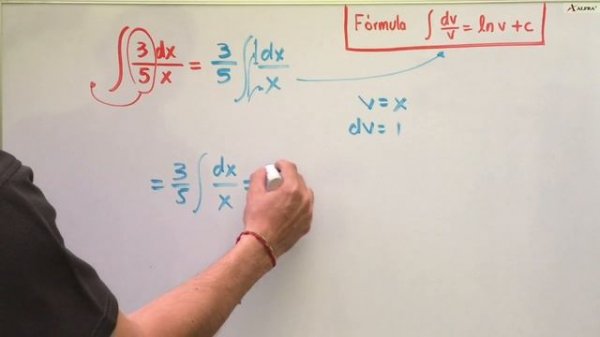 ALPHA
Fórmula ∫ dv/v = ln v + c
∫ 3/5 dx/x = 3/5 ∫ 1 dx/x
v = x
dv = 1
= 3/5 ∫ dx/x =